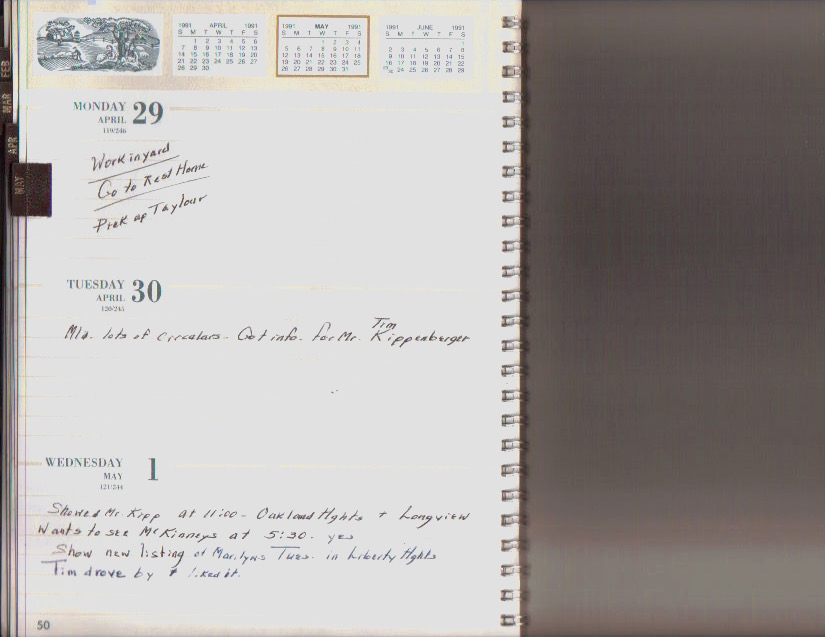 1991 APRIL 1991
S M T W T F S
1 2 3 4 5 6
7 8 9 10 11 12 13
14 15 16 17 18 19 20
21 22 23 24 25 26 27
28 29 30
1991 MAY 1991
S M T W T F S
1 2 3 4
5 6 7 8 9 10 11
12 13 14 15 16 17 18
19 20 21 22 23 24 25
26 27 28 29 30 31
1991 JUNE 1991
S M T W T F S
1
2 3 4 5 6 7 8
9 10 11 12 13 14 15
16 17 18 19 20 21 22
23/30 24 25 26 27 28 29
FEB
MAR
APR
MAY
MONDAY 29
APRIL
119/246
Work in yard
Go to Rest Home
Pick up Taylour
TUESDAY 30
APRIL
120/245
Tim
lots of circulars - Got info. for Mr. Kippenberger
WEDNESDAY 1
MAY
121/244
Showed Mr. Kipp at 11:00 - Oakland Hghts + Longview
Wants to see McKinneys at 5:30. yes
Show new listing of Marilyns Tues. in Liberty Hghts
Tim drove by + liked it.
50